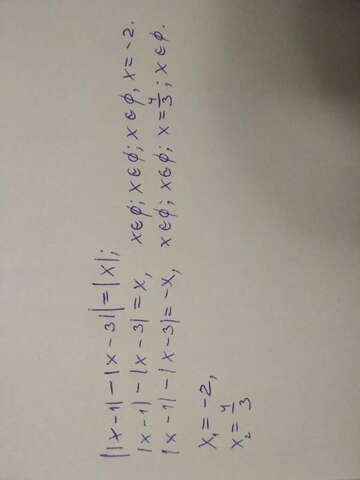 ||x-1|-|x-3||=|x|;
|x-1|-|x-3|=x, x∈ϕ; x∈ϕ; x∈ϕ, x=-2.
|x-1|-|x-3|=-x, x∈ϕ; x∈ϕ; x=4/3; x∈ϕ.
x₁=-2,
x₂=4/3